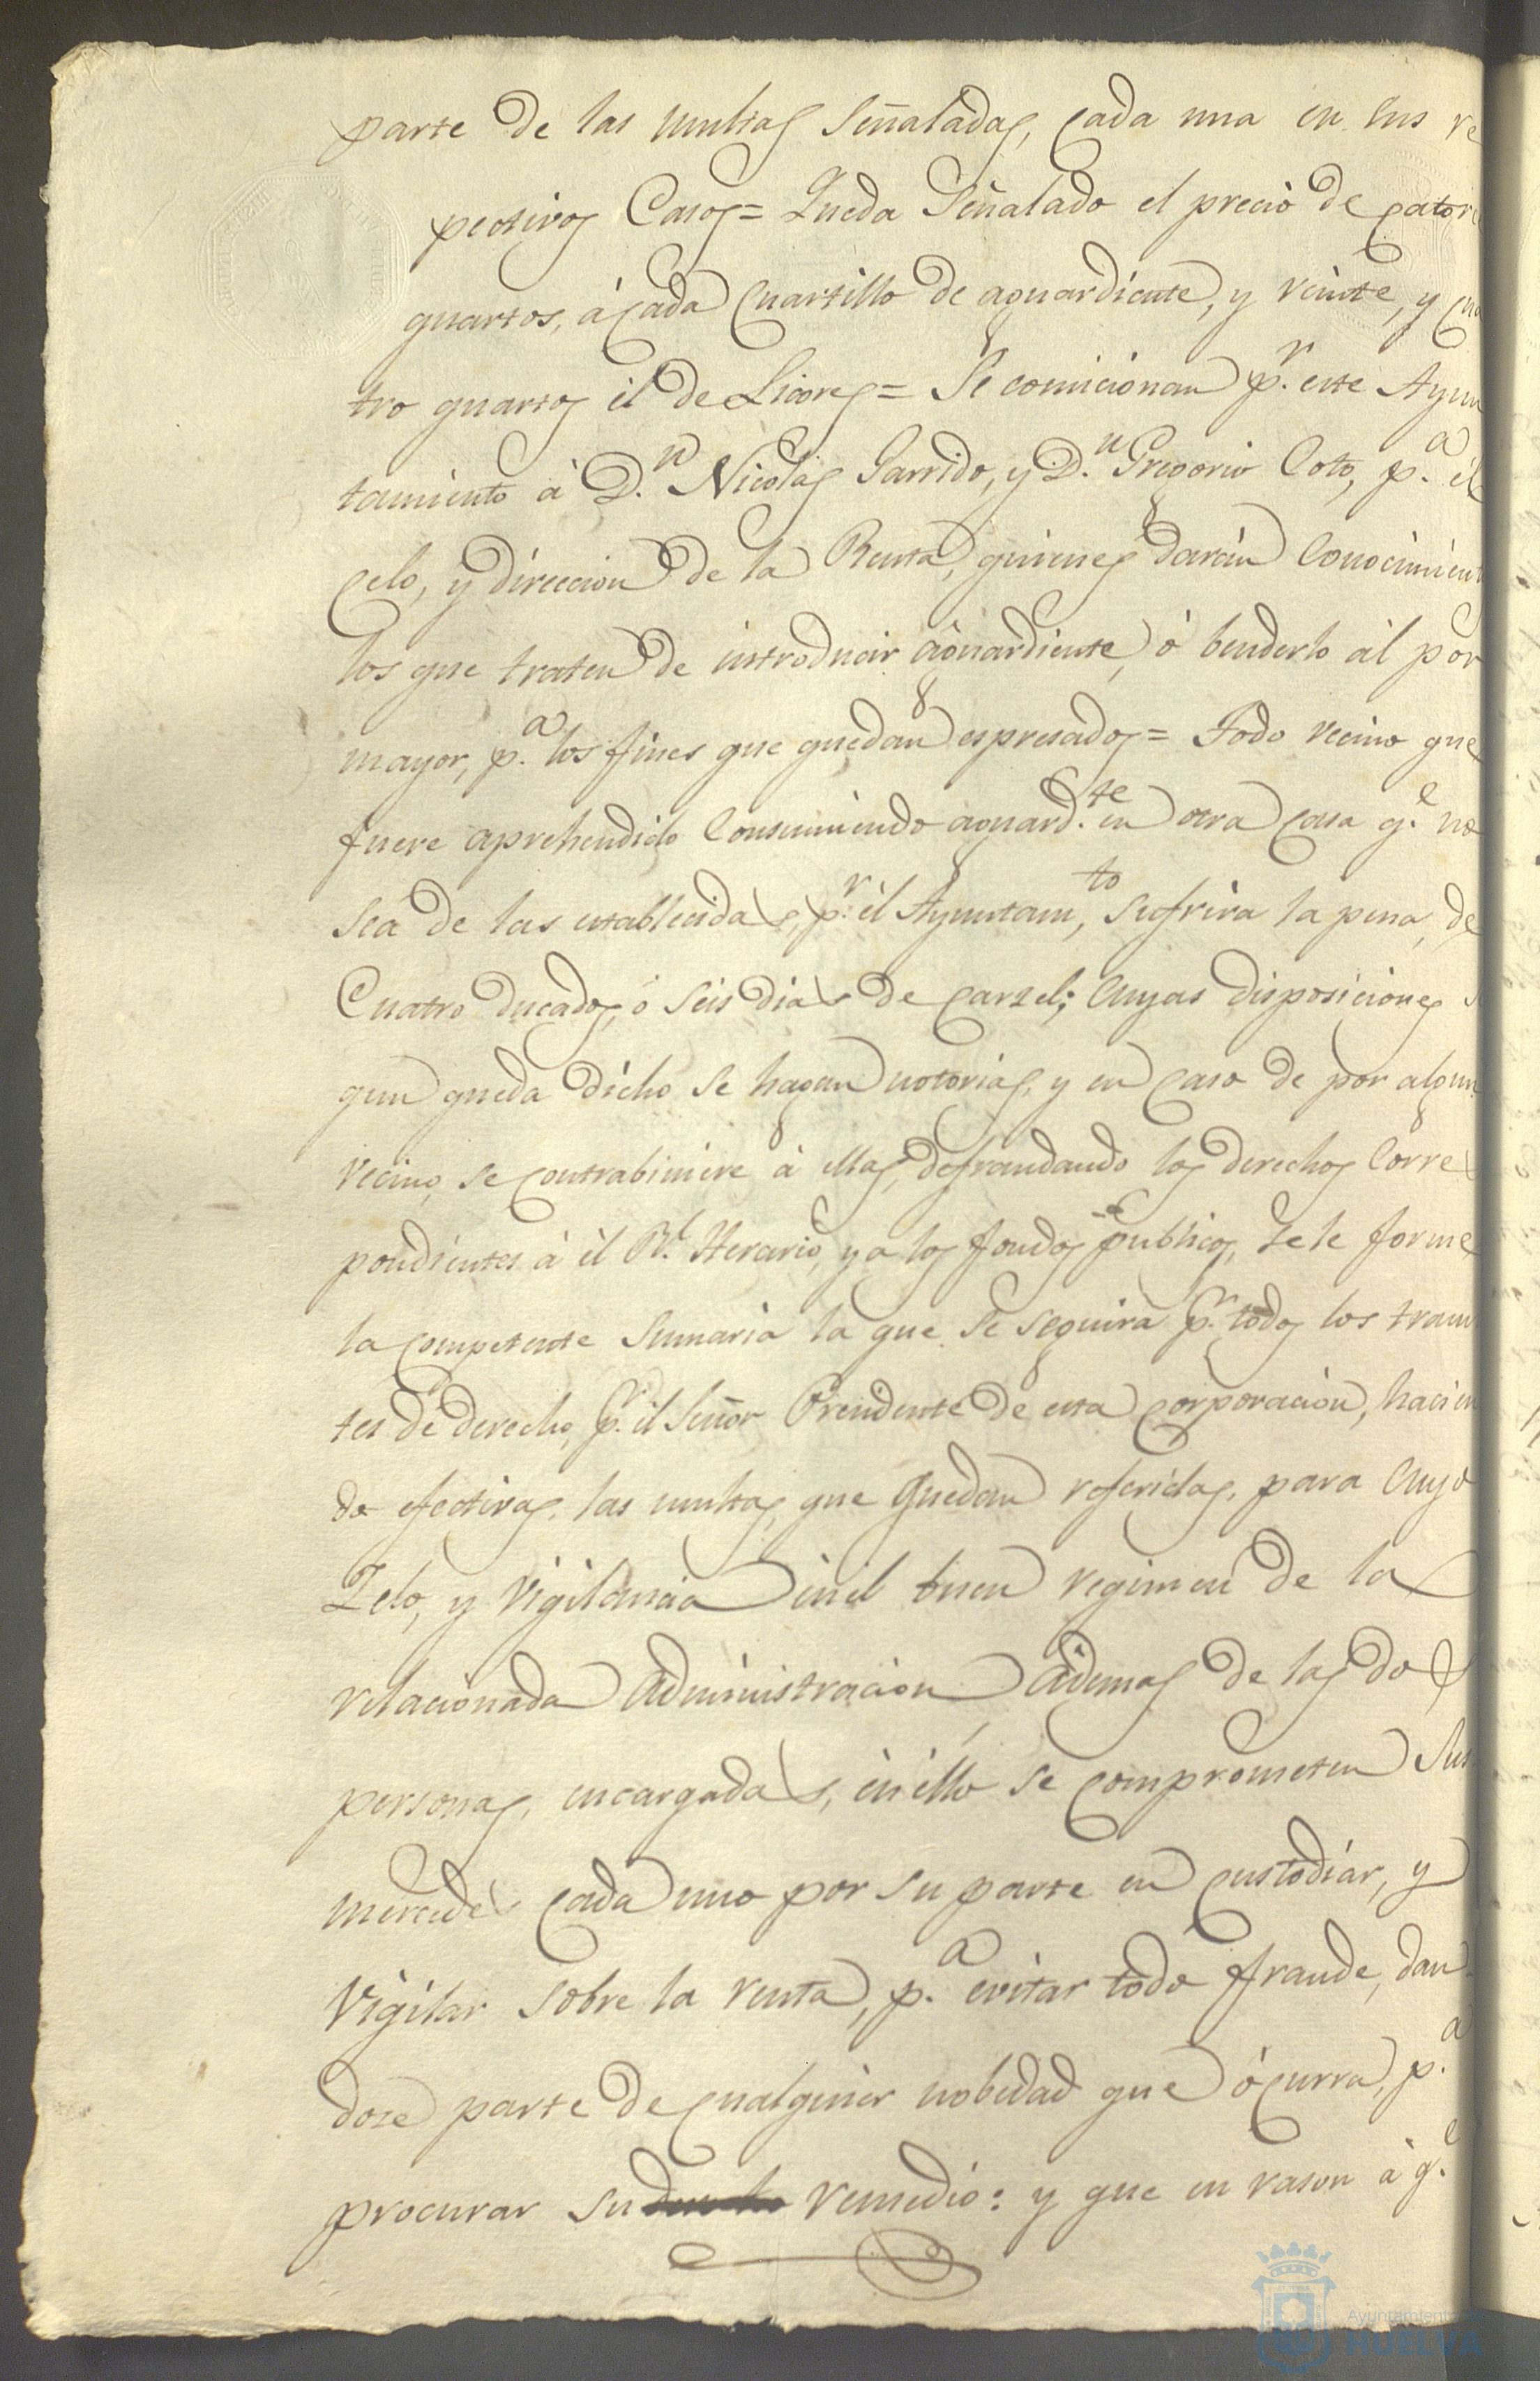 parte de las multas señaladas, cada una en sus re
pectivos Casos = Queda Señalado el precio de cator
quartos, á cada Cuartillo de aguardiente, y veinte, y cua
tro quartos el de Licores = Se comicionan p.r este Ayun
tamiento á D.n Nicolas Garrido, y D.n Gregorio Coto, p.a él
celo, y direccion de la Renta, quienes darán Conocimient
los que traten de introducir aguardiente, ó benderlo ál por
mayor, p.a los fines que quedan espresados = Todo vecino que
fuere aprehendido Consumiendo aguard.te en otra casa q.e no
seá de las establecidas, p.r él Ayuntam.to, sufrirá la pena, de
Cuatro ducados, ó seis dias de carzel; Cuyas disposiciones s
gun queda dicho se hagan notorias, y en caso de por algun
vecino, se contrabiniere á ellas, defraudando los derechos Corres
pondientes á él R.l Herario, y a los fondos publicos, se le forme
la competente Sumaria la que se seguirá p.r todos los trami
tes de derecho, p.r él Señor Presidente de esta corporacion, hacien
do efectivas, las multas, que quedan referidas, para cuyo
Zelo, y Vigilancia en el buen regimen de la
relacionada Administracion, ademas de las dos
personas, encargadas, en ello se comprometen Sus
mercedes cada uno por su parte en custodiar, y
Vigilar sobre la renta, p.a evitar todo fraude, dan
dose parte de cualquier nobedad que ócurra, p.a
procurar su remedio: y que en rason á q.e
Ayuntamiento
HUELVA